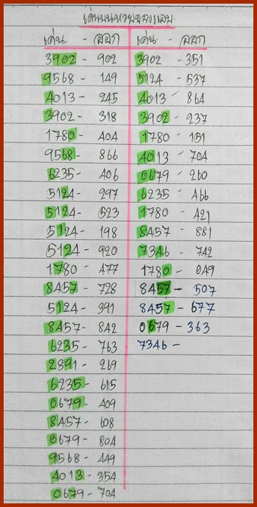 เด่นบนหวยฉลองแอม
เด่น - ออก เด่น - ออก
3902 - 902
9568 - 149
4013 - 245
3902 - 318
1780 - 404
9568 - 866
6235 - 406
5124 - 297
5124 - 523
5124 - 198
5124 - 920
1780 - 477
8457 - 728
5124 - 391
8457 - 842
6235 - 763
2891 - 269
6235 - 615
0679 - 409
8457 - 608
0679 - 804
9568 - 449
4013 - 354
0679 - 704
3902 - 351
5124 - 537
4013 - 864
3902 - 237
1780 - 151
4013 - 704
0679 - 260
6235 - 466
1780 - 421
8457 - 881
7346 - 742
1780 - 049
8457 - 507
8457 - 677
0679 - 363
7346 -